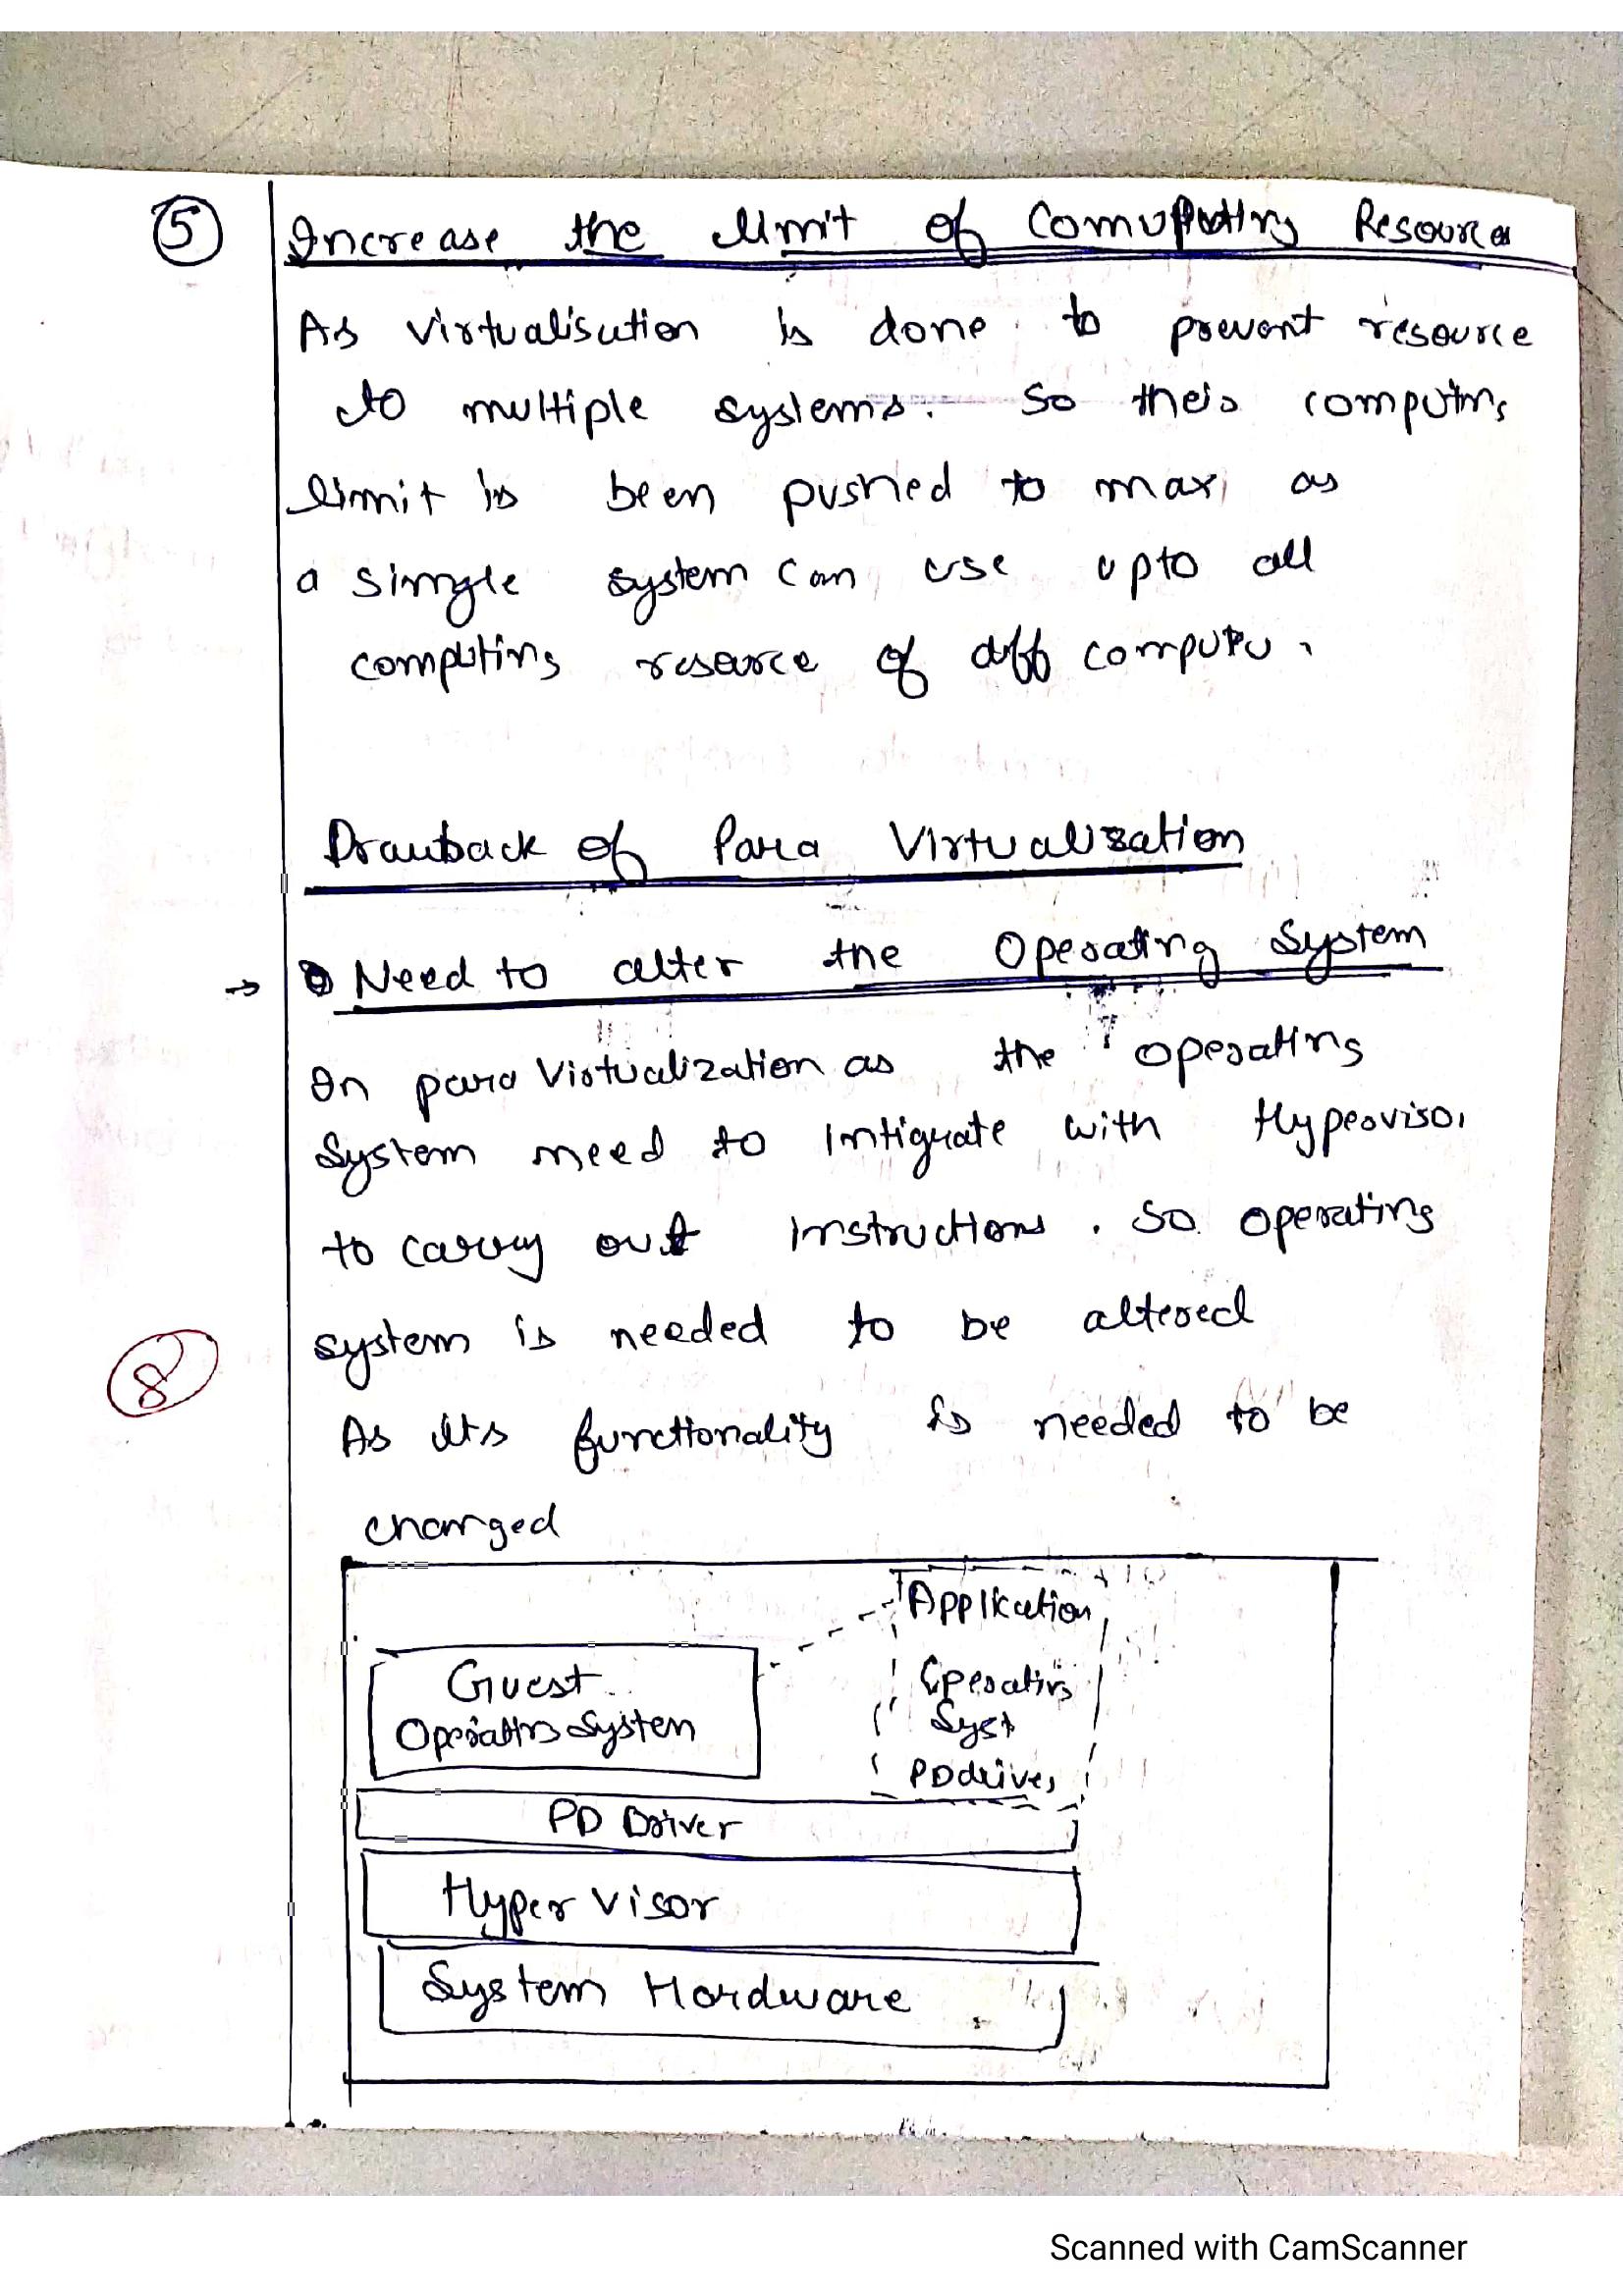 5 Increase the limit of Comuputing Resources
As virtualisation is done to prevent resource
to multiple systems. So theis computing
limit is been pushed to max, as
a single system can use upto all
computing resource of diff computer.
Drawback of Para Virtualization
→ Need to alter the Operating System
In para Virtualization as the operating
System need to intigrate with Hypervisor
to carry out instructions. So operating
system is needed to be altered
8
As its functionality is needed to be
changed
Application
Guest
Operating System
Operating
Syst
PD drives
PD Driver
Hyper visor
System Hardware
Scanned with CamScanner